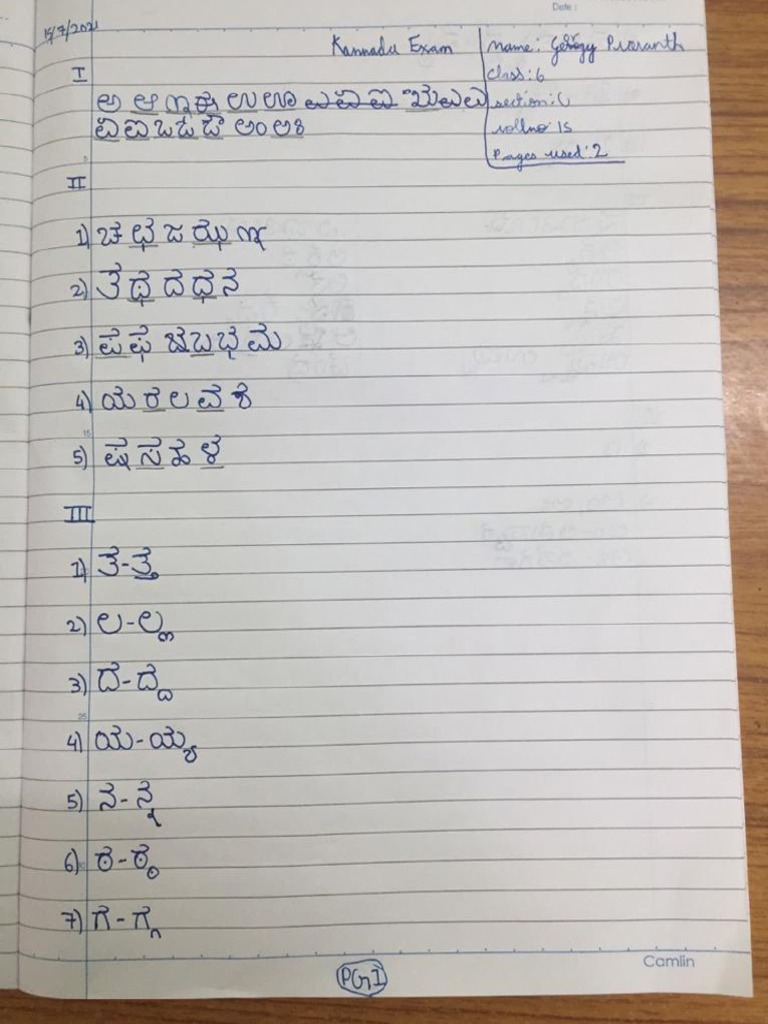 Date :
15/7/2021
Kannada Exam
name: Prasanth
class: 6
section: C
rollno 15
Pages used: 2
I
ಅ ಆ ಇ ಈ ಉ ಊ
ಒ ಓ ಔ ಅಂ ಅಃ
II
1) ಚ ಛ ಜ ಝ ಞ
2) ತ ಥ ದ ಧ ನ
3) ಪ ಫ ಬ ಭ ಮ
4) ಯ ರ ಲ ವ ಶ
5) ಷ ಸ ಹ ಳ
III
1) ತ - ತ್ತ
2) ಲ - ಲ್ಲ
3) ದ - ದ್ದ
4) ಯ - ಯ್ಯ
5) ನ - ನ್ನ
6) ಠ - ಠ್ಠ
7) ಗ - ಗ್ಗ
PG I
Camlin